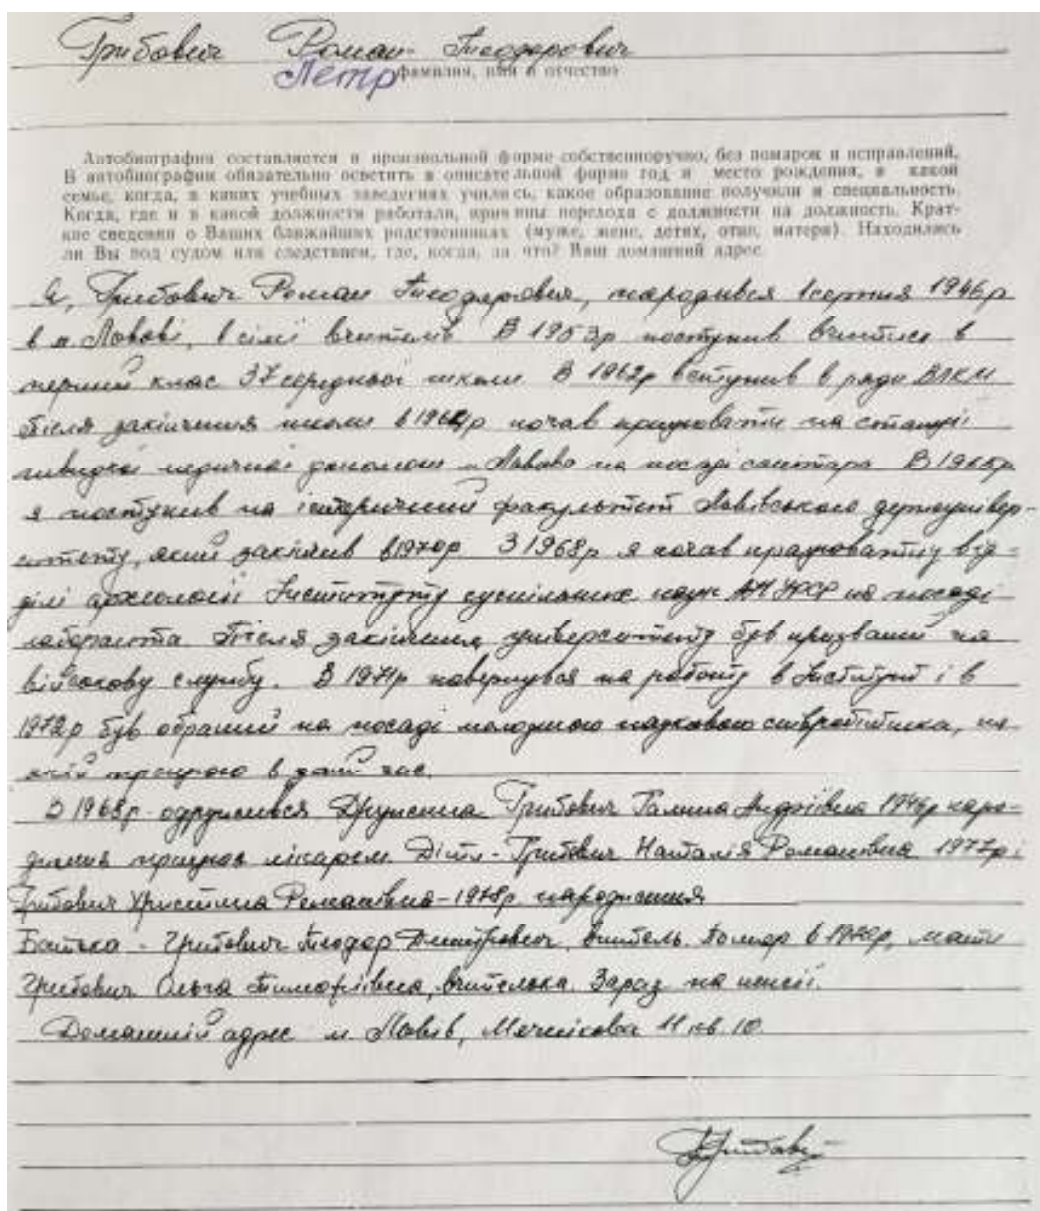 Грибович Роман Теодорович
Петр
фамилия, имя и отчество
Автобиография составляется в произвольной форме собственноручно, без помарок и исправлений.
В автобиографии обязательно осветить в описательной форме год и место рождения, в какой
семье, когда, в каких учебных заведениях учились, какое образование получили и специальность.
Когда, где и в какой должности работали, причины перехода с должности на должность. Крат-
кие сведения о Ваших ближайших родственниках (муже, жене, детях, отце, матери). Находились
ли Вы под судом или следствием, где, когда, за что? Ваш домашний адрес
Я, Грибович Роман Теодорович, народився 1 серпня 1946р
в м. Львові, в сімі вчителів. В 1953р поступив вчитися в
перший клас 37 середньої школи. В 1962р вступив в ряди ВЛКМ
Після закінчення школи в 1964р почав працювати на станції
швидкої медичної допомоги м Львова на посаді санітара. В 1965р
я поступив на історичний факультет Львівського держунівер-
ситету, який закінчив в 1970р. З 1968р я почав працювати у від-
ділі археології Інституту суспільних наук АН УРСР на посаді
лаборанта. Після закінчення університету був призваний на
військову службу. В 1971р повернувся на роботу в Інститут і в
1972р був обраний на посаді молодшого наукового співробітника, на
якій працюю в даний час.
В 1968р. одружився Дружина Грибович Галина Андріївна 1946р народ-
ження працює лікарем. Діти - Грибович Наталія Романівна 1977р і
Грибович Христина Романівна - 1978р. народження
Батько - Грибович Теодор Дмитрович, вчитель. Помер в, мати
Грибович Ольга Тимофіївна, вчителька. Зараз на пенсії.
Домашній адрес м. Львів, Мечнікова 11 кв. 10.
Грибович